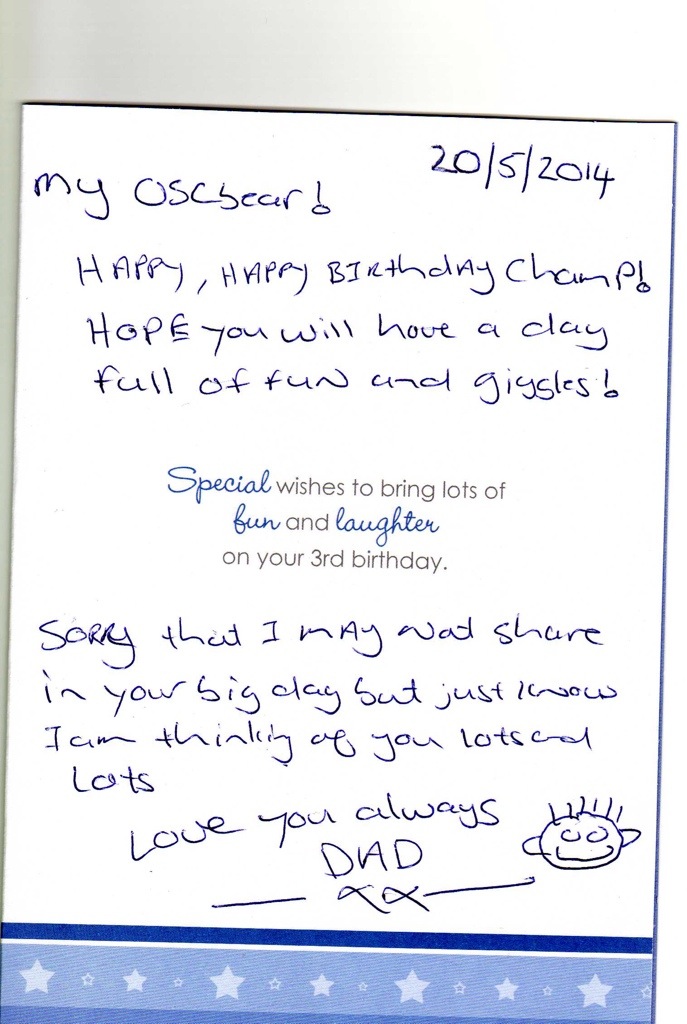 20/5/2014
My OSCbear!
HAPPY, HAPPY BIRthdAY ChamP!
HOPE you will have a day
full of fun and giggles!
Special wishes to bring lots of
fun and laughter
on your 3rd birthday.
SORRY that I mAy not share
in your big day but just know
I am thinking of you lots and
Lots
Love you always
DAD
xx